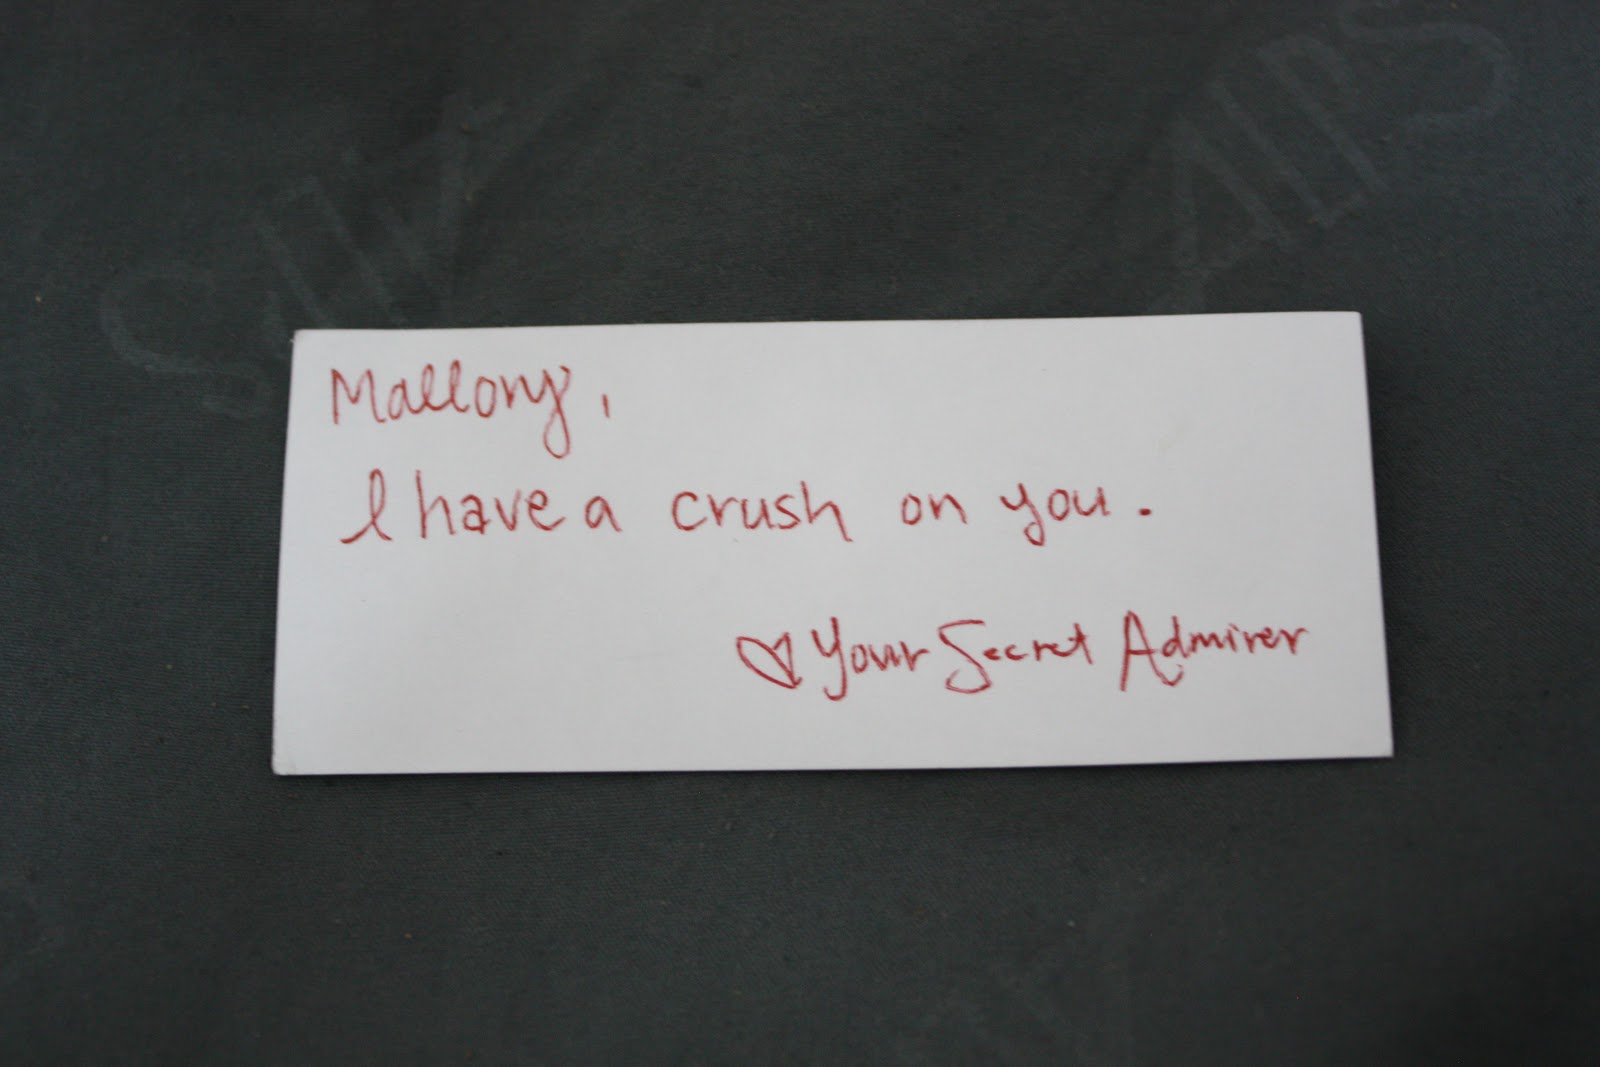 Mallory,
I have a crush on you.
♡ Your Secret Admirer